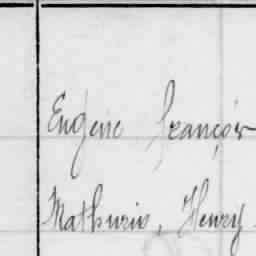 Eugène François
Mathurin, Henry